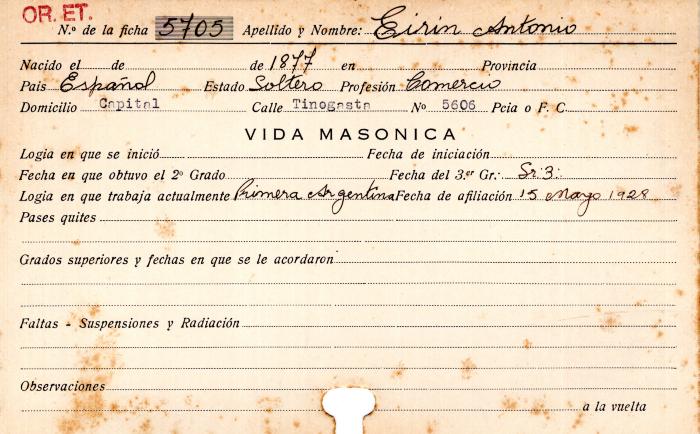 OR. ET.
N.º de la ficha 5705 Apellido y Nombre: Eirin Antonio
Nacido el de de 1877 en Provincia
Pais Español Estado Soltero Profesión Comercio
Domicilio Capital Calle Tinogasta Nº 5606 Pcia o F. C.
VIDA MASONICA
Logia en que se inició Fecha de iniciación
Fecha en que obtuvo el 2º Grado Fecha del 3.er Gr.·. Gr∴ 3∴
Logia en que trabaja actualmente Primera Argentina Fecha de afiliación 15 Mayo 1928
Pases quites
Grados superiores y fechas en que se le acordaron
Faltas - Suspensiones y Radiación
Observaciones
a la vuelta